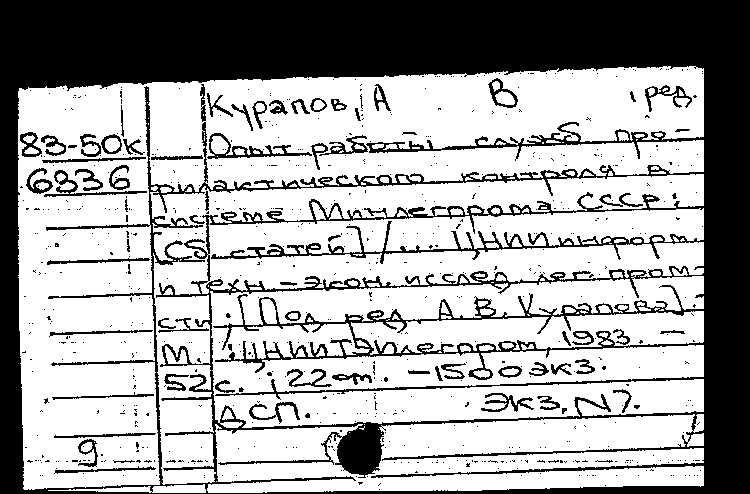 Курапов, А В , ред.
83-50к Опыт работы служб про-
6836 филактического контроля в
системе Минлегпрома СССР:
[Сб. статей] / .... ЦНИИ информ.
и техн.-экон. исслед. лег. пром-
сти ; [Под ред. А. В. Курапова] -
М. : ЦНИИТЭИлегпром, 1983. —
52 с. ; 22 см. - 1500 экз.
ДСП. Экз. N 7.
9